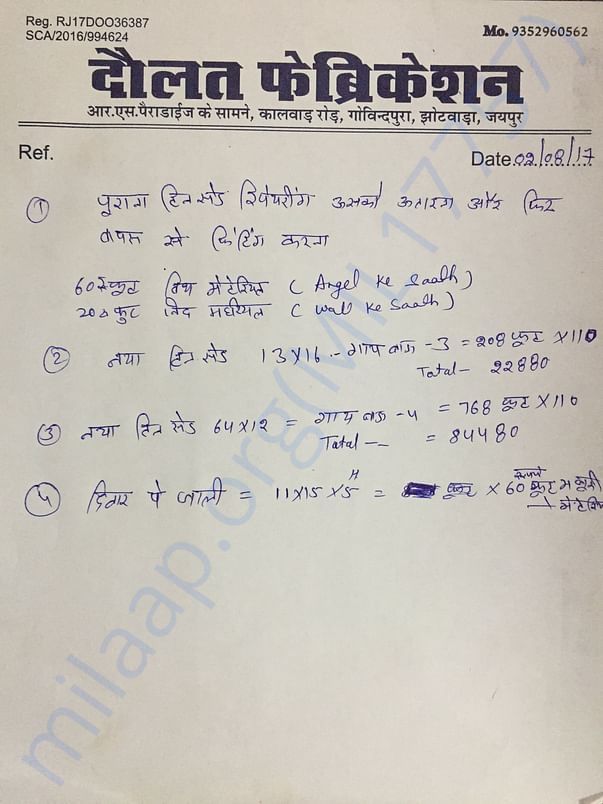 Reg. RJ17DOO36387
SCA/2016/994624
Mo. 9352960562
दौलत फेब्रिकेशन
आर.एस.पैराडाईज के सामने, कालवाड़ रोड़, गोविन्दपुरा, झोटवाड़ा, जयपुर
Ref.
Date 02/08/17
① पुराना टिनसेड रिपेयरींग उसको उतारना और फिर
वापस से फिटिंग करना
60 रु फूट विथ मेटेरियल ( Angel Ke Saath )
20 रु फुट ( Wall Ke Saath )
② नया टिन सेड 13X16 - गाय बाड़ा -3 = 208 फूट X110
Total - 22880
③ नया टिन सेड 64X12 = गाय बाड़ा -4 = 768 फूट X110
Total — = 84480
④ दिवार पे जाली = 11X15 X5 H = फूट X 60 रूपये फूट
milaap.org(MIL17757)